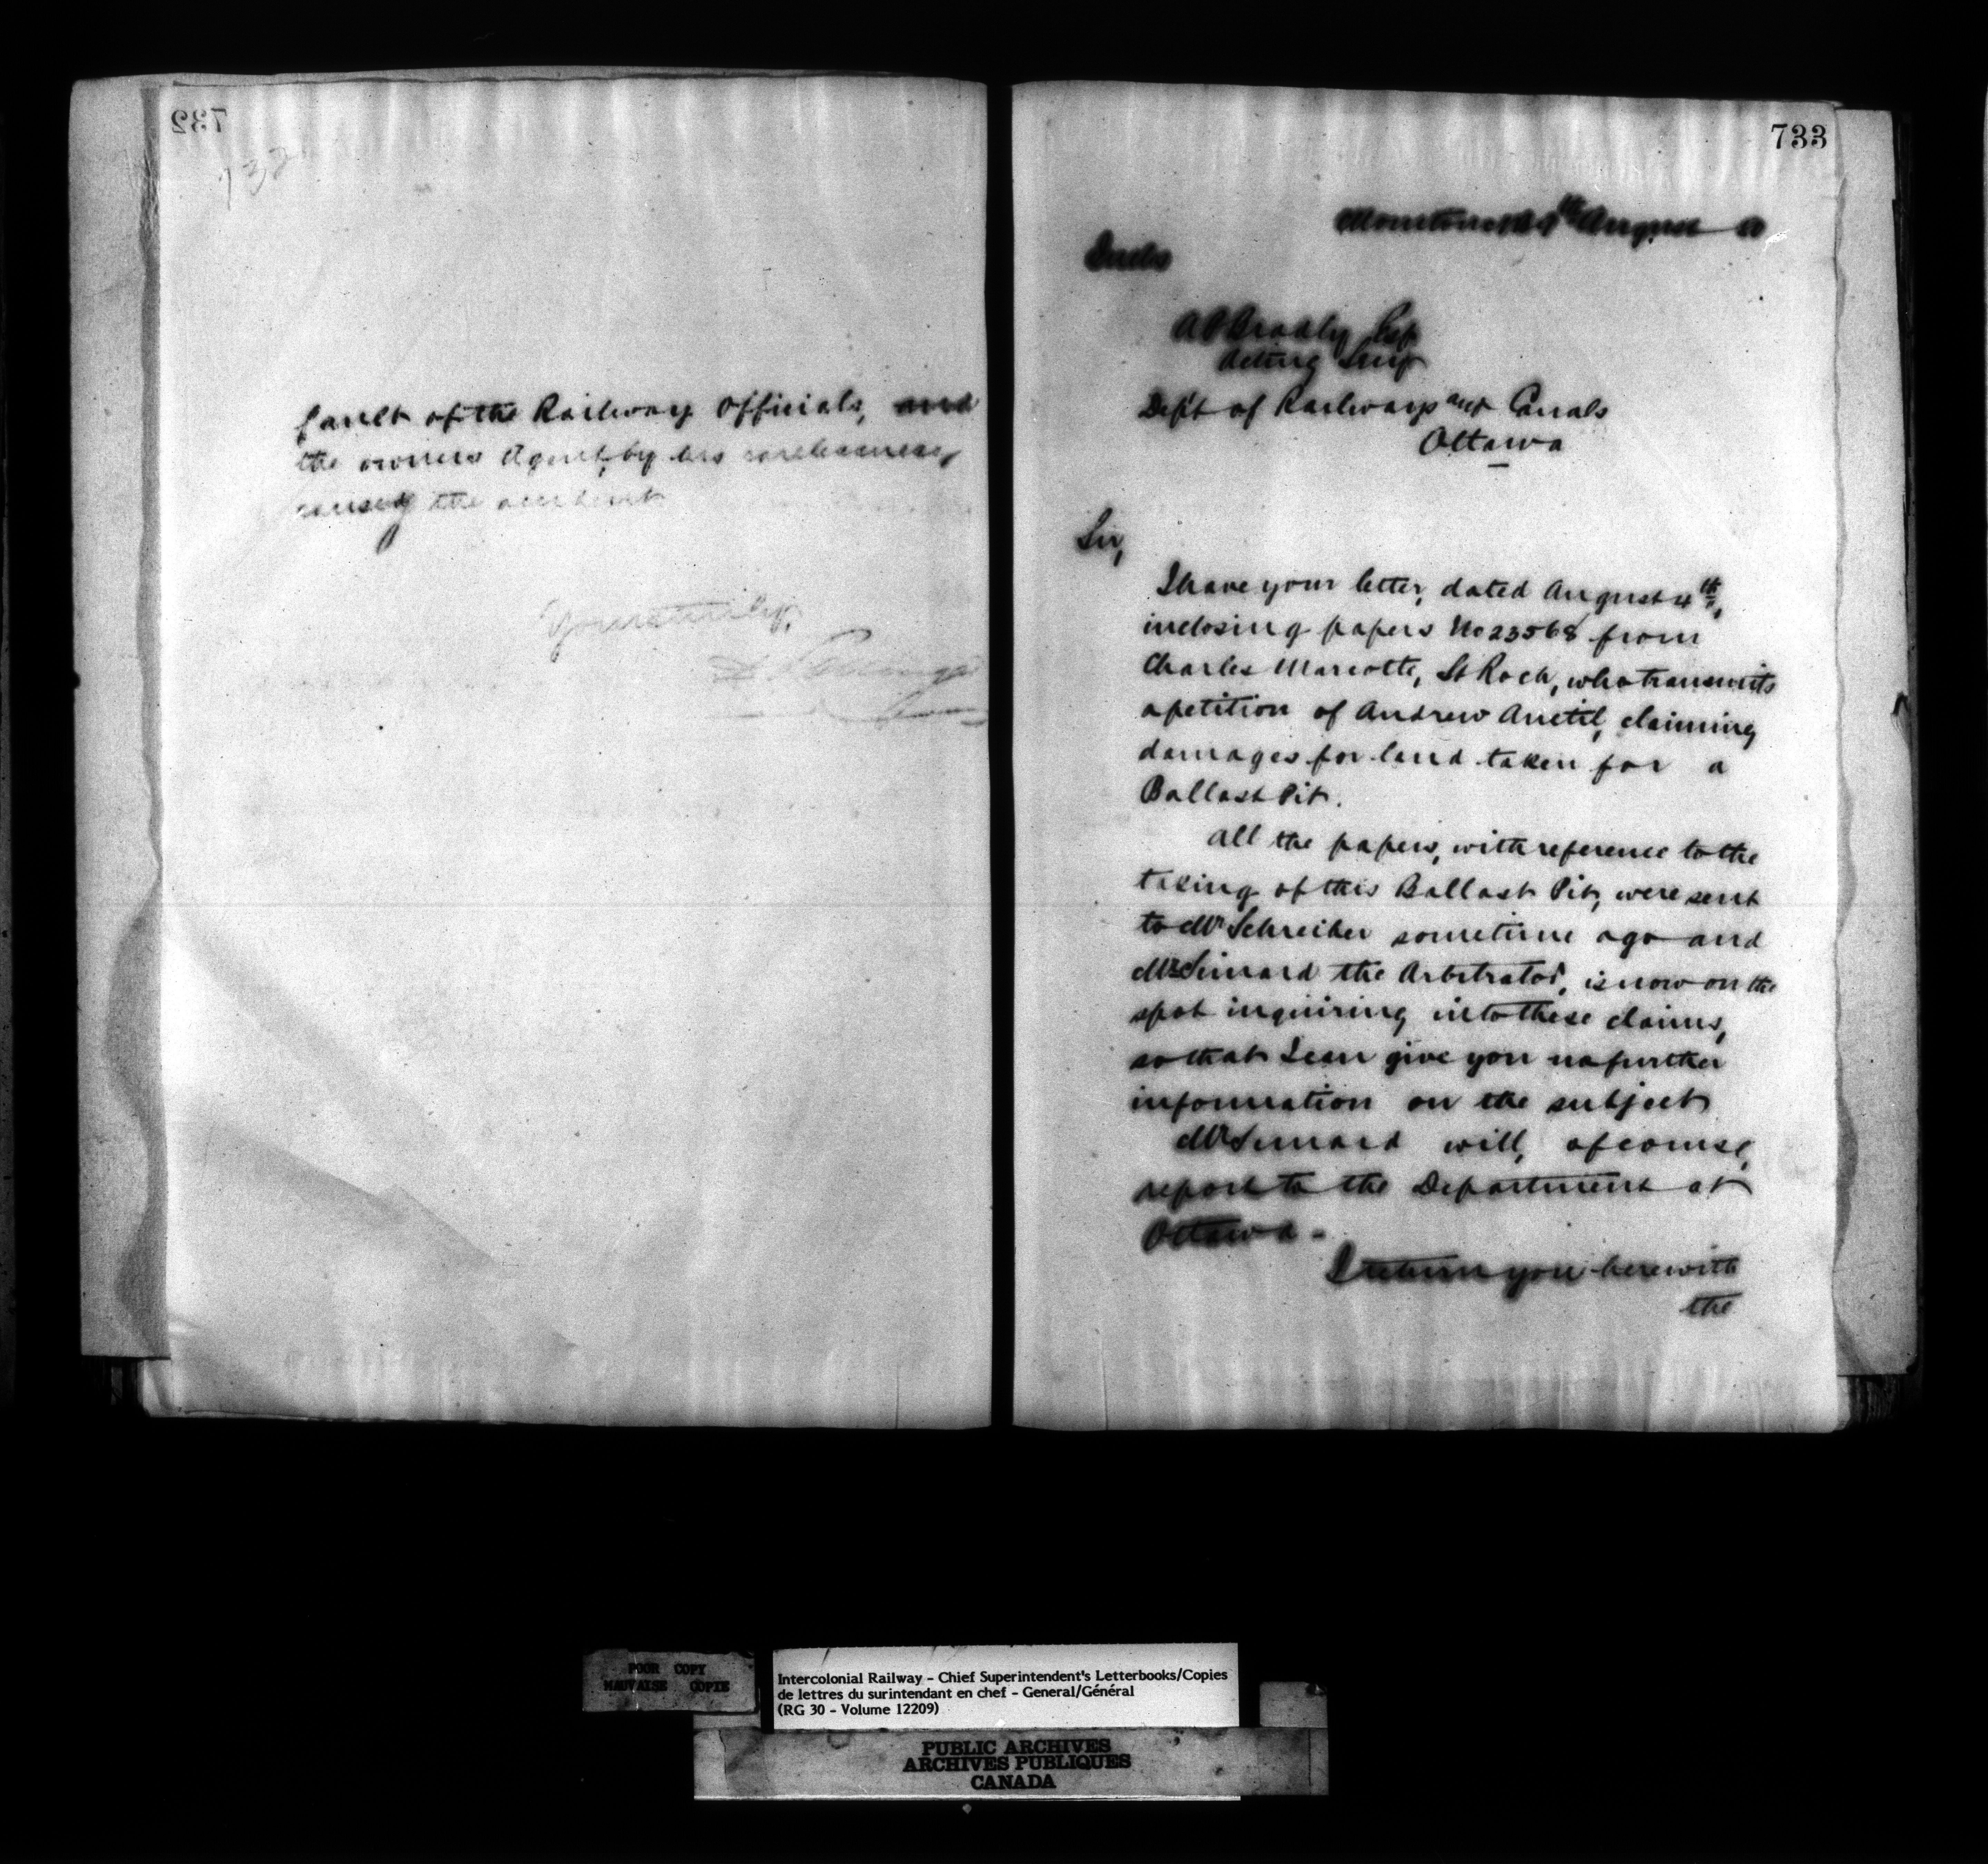 732
732
fault of the Railway Officials, and
the owners Agent, by his carelessness,
causing the accident
Yours truly,
D Pottinger
733
Moncton August
Encls
A P Bradley Esq
Acting Secy
Dep't of Railways and Canals
Ottawa
Sir,
I have your letter, dated August 4th,
inclosing papers No 23568 from
Charles Marcotte, St Roch, who transmits
a petition of Andrew Anctil, claiming
damages for land taken for a
Ballast Pit.
All the papers, with reference to the
taking of this Ballast Pit, were sent
to Mr Schreiber sometime ago and
Mr Simard the Arbitrator, is now on the
spot inquiring into these claims,
so that I can give you no further
information on the subject
Mr Simard will, of course,
report to the Department at
Ottawa -
I return you herewith
the
POOR COPY
MAUVAISE COPIE
Intercolonial Railway - Chief Superintendent's Letterbooks/Copies
de lettres du surintendant en chef - General/Général
(RG 30 - Volume 12209)
PUBLIC ARCHIVES
ARCHIVES PUBLIQUES
CANADA